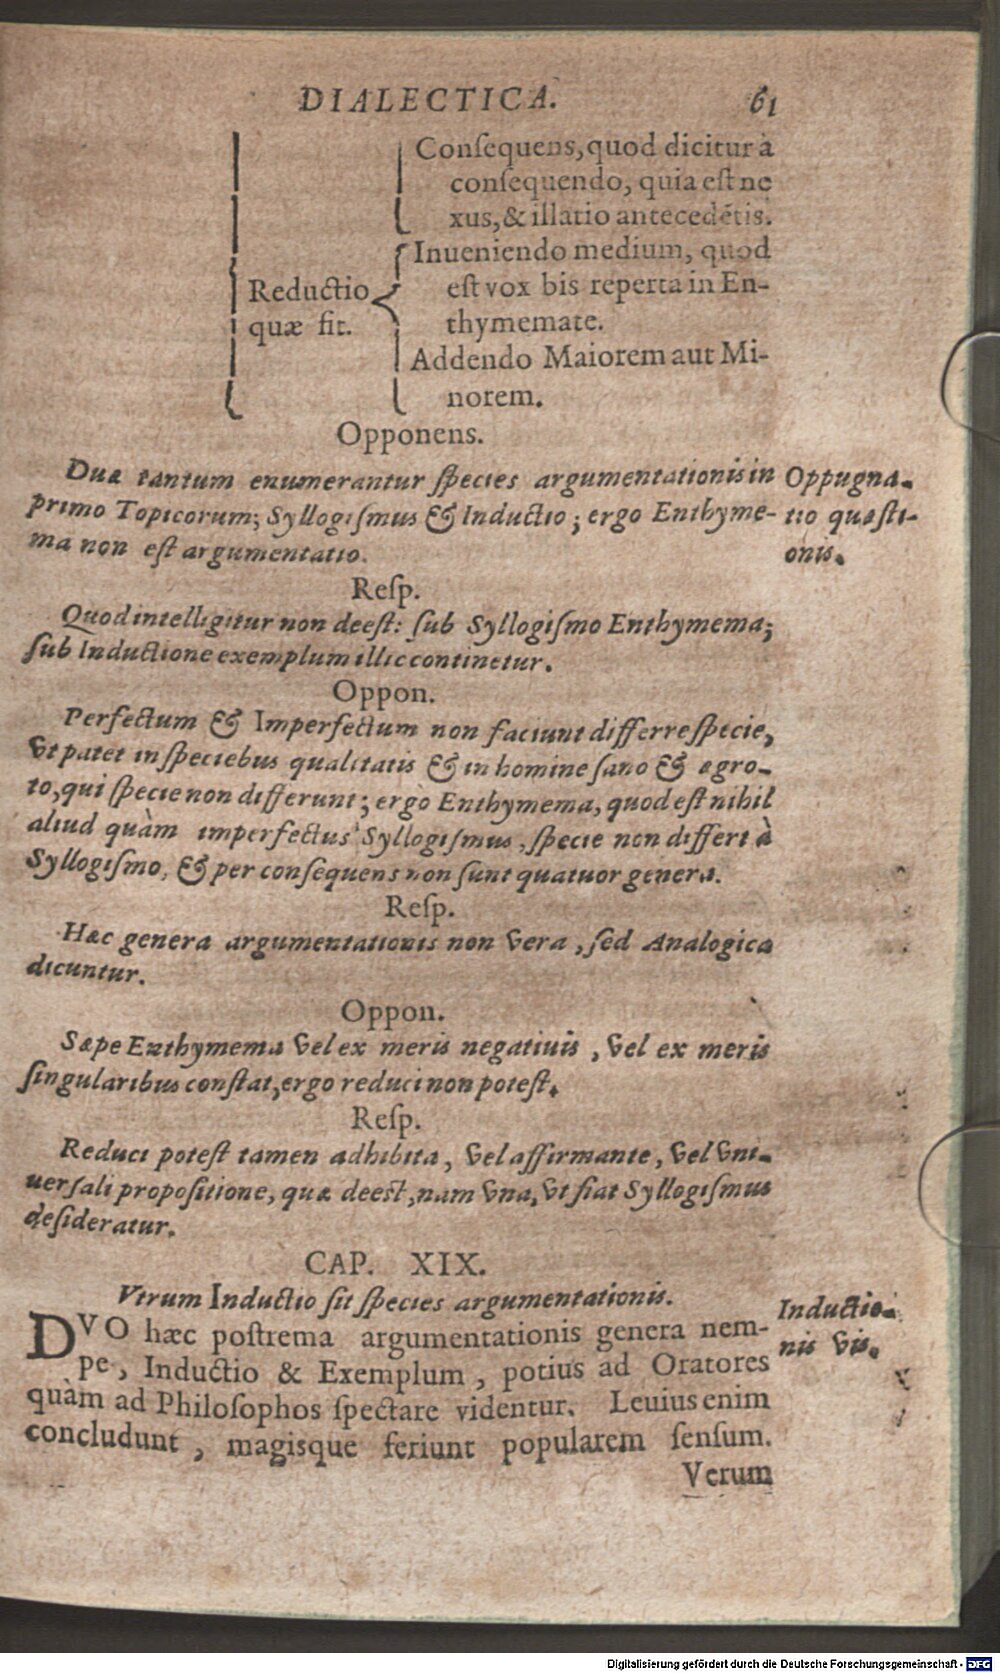 DIALECTICA. 61
Conſequens, quod dicitur à
conſequendo, quia eſt ne
xus, & illatio antecedẽtis.
Inueniendo medium, quod
Reductio eſt vox bis reperta in En-
quæ fit. thymemate.
Addendo Maiorem aut Mi-
norem.
Opponens.
Duæ tantum enumerantur ſpecies argumentationis in Oppugna-
primo Topicorum; Syllogiſmus & Inductio; ergo Enthyme- tio quæſti-
ma non eſt argumentatio. onis.
Reſp.
Quod intelligitur non deeſt: ſub Syllogiſmo Enthymema;
ſub Inductione exemplum illic continetur.
Oppon.
Perfectum & Imperfectum non faciunt differre ſpecie,
vt patet in ſpeciebus qualitatis & in homine ſano & ægro-
to, qui ſpecie non differunt; ergò Enthymema, quod eſt nihil
aliud quàm imperfectus Syllogiſmus, ſpecie non differt à
Syllogiſmo, & per conſequens non ſunt quatuor genera.
Reſp.
Hæc genera argumentationis non vera, ſed Analogica
dicuntur.
Oppon.
Sæpe Enthymema vel ex meris negatiuis, vel ex meris
ſingularibus conſtat, ergo reduci non poteſt.
Reſp.
Reduci poteſt tamen adhibita, vel affirmante, vel vni-
uerſali propoſitione, quæ deeſt, nam vna, vt fiat Syllogiſmus
deſideratur.
CAP. XIX.
Vtrum Inductio ſit ſpecies argumentationis.
DVO hæc poſtrema argumentationis genera nem- Inductio-
pe, Inductio & Exemplum, potius ad Oratores nis vis.
quàm ad Philoſophos ſpectare videntur. Leuius enim
concludunt, magisque feriunt popularem ſenſum.
Verum
Digitalisierung gefördert durch die Deutsche Forschungsgemeinschaft - DFG